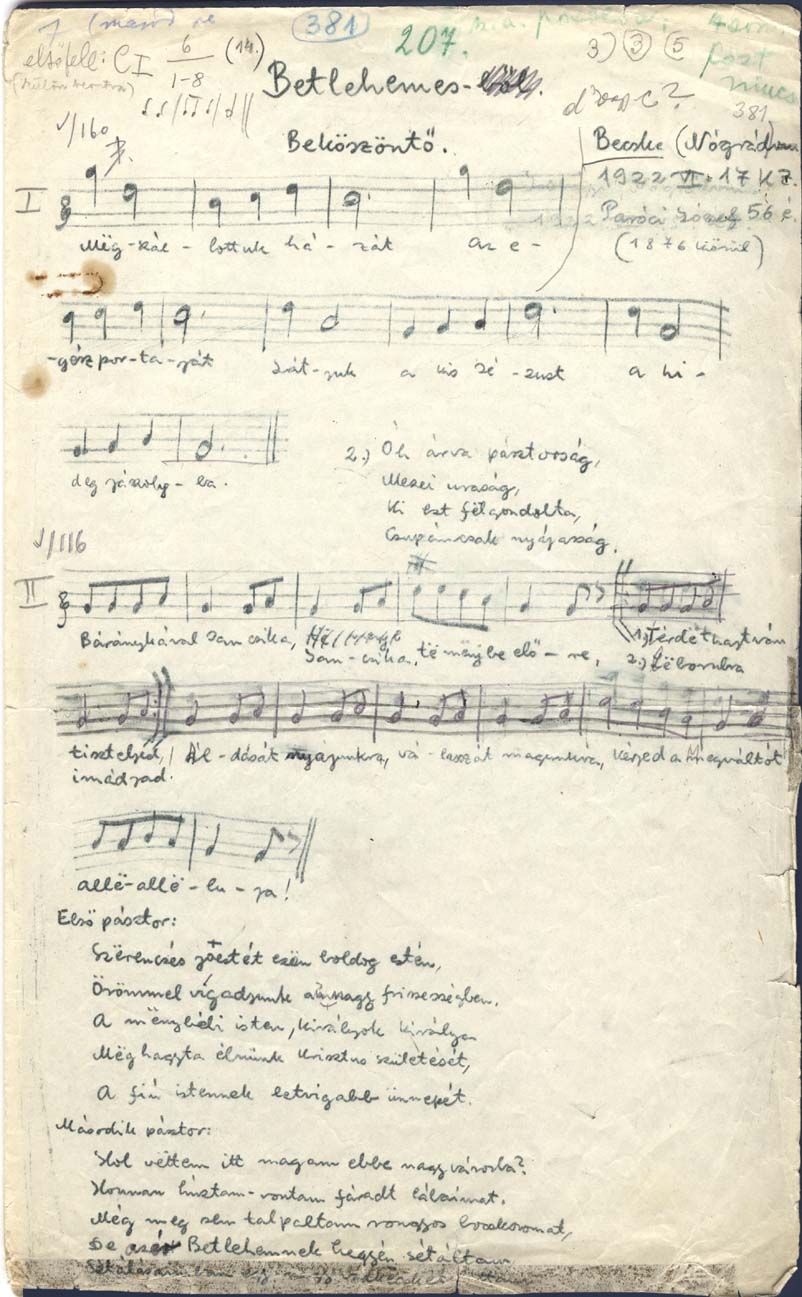 381
207.
elsőfele: C I 6 (14.)
1-8
3) ③ ⑤
pószt
nincs
381
Betlehemes-
V/160
Beköszöntő.
Becske (Nógrád)
1922 VI. 17 K Z.
Paróci József 56 é.
(1876 körül)
I
Meg-szál-lottuk há-zát az e-
-gész por-ta-ját Lát-juk a kis Jé-zust a hi-
deg jászoly-ba.
2.) Óh árva pásztorság,
Mezei uraság,
Ki ezt felgondolta,
Csupáncsak nyájasság.
V/116
II
Báránykával Jancsika, Jan-csika, të mënj be elő-re,
1.) Térdet hajtván
2.) Leborulva
tiszteljed, Ál-dását nyájunkra, vá-laszát magunkra, kérjed a Megváltót
imádjad.
allë-allë-lu-ja!
Első pásztor:
Szërencsés jóestét ezën boldog estén,
Örömmel vigadjunk nagy frissességben.
A mënybéli isten, királyok királya
Mëghagyta élnünk Krisztus születését,
A fiú istennek letvigabb ünnepét.
Második pásztor:
Hol vëttem itt magam ebbe nagy városba?
Honnan húztam-vontam fáradt lábaimat.
Még meg sem talpaltam rongyos bocskoromat,
De Betlehemnek hegyén sétáltam